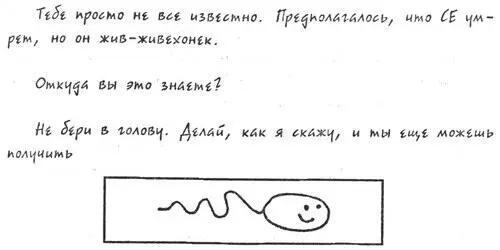 Тебе просто не все известно. Предполагалось, что СЕ ум-
рет, но он жив-живехонек.
Откуда вы это знаете?
Не бери в голову. Делай, как я скажу, и ты еще можешь
получить